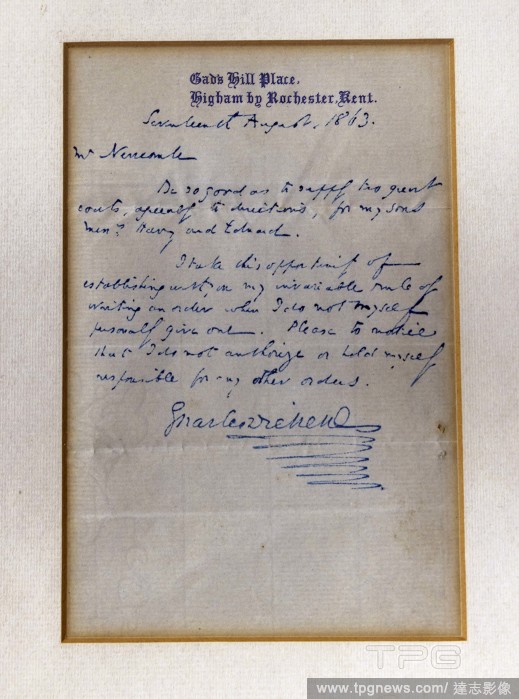 Gad's Hill Place,
Higham by Rochester, Kent.
Seventeenth August, 1863.
Mr Newcomb
Be so good as to supply two great
coats, specially to directions, for my sons
Henry and Edward.
I take this opportunity of
establishing with you my invariable rule of
writing an order when I do not myself
personally give one. Please to notice
that I do not authorize or hold myself
responsible for any other orders.
Charles Dickens
TPG
www.tpgnews.com / 達志影像